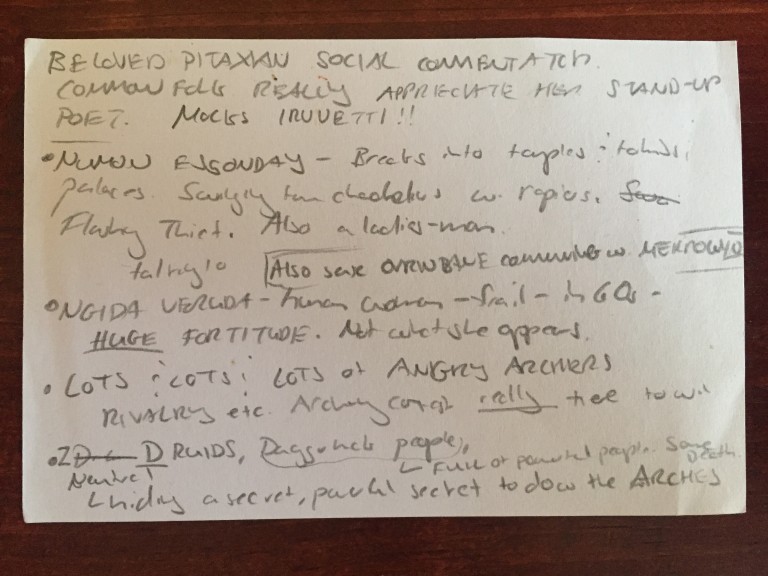 BELOVED PITAXIAN SOCIAL COMMENTATOR.
COMMON FOLK REALLY APPRIECIATE HER STAND-UP
POET. MOCKS IRUVETTI!!
• NUMON ESGONDAY - Breaks into temples &
palaces. Swinging from chandeliers w. rapiers.
Flashy Thief. Also a ladies-man.
Also save communing w.
• NGIDA VERUDA - human woman - frail - in 60s -
HUGE FORTITUDE. Not what she appears.
• LOTS & LOTS & LOTS of ANGRY ARCHERS
RIVALRY etc. Archery really
• 2 DRUIDS, people,
Full of powerful people. Some
Neutral
hiding a secret, powerful secret to do w the ARCHES